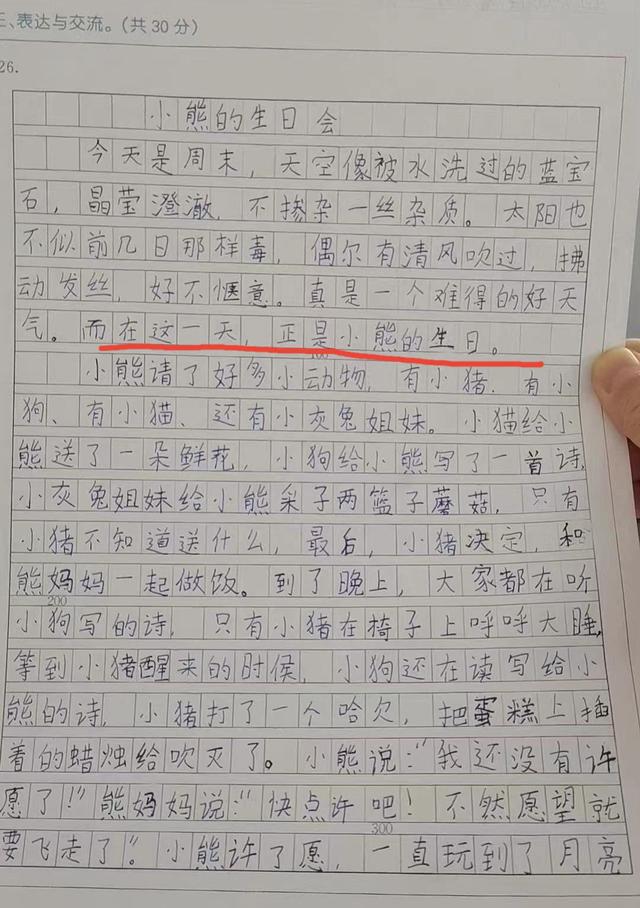 三、表达与交流。(共30分)
26.
小熊的生日会
今天是周末，天空像被水洗过的蓝宝
石，晶莹澄澈，不掺杂一丝杂质。太阳也
不似前几日那样毒，偶尔有清风吹过，拂
动发丝，好不惬意。真是一个难得的好天
气。而在这一天，正是小熊的生日。
小熊请了好多小动物，有小猪、有小
狗、有小猫、还有小灰兔姐妹。小猫给小
熊送了一朵鲜花，小狗给小熊写了一首诗，
小灰兔姐妹给小熊采子两篮子蘑菇，只有
小猪不知道送什么，最后，小猪决定，和
熊妈妈一起做饭。到了晚上，大家都在听
200
小狗写的诗，只有小猪在椅子上呼呼大睡。
等到小猪醒来的时侯，小狗还在读写给小
熊的诗，小猪打了一个哈欠，把蛋糕上插
着的蜡烛给吹灭了。小熊说：“我还没有许
愿了！”熊妈妈说：“快点许吧！不然愿望就
300
要飞走了”。小熊许了愿，一直玩到了月亮